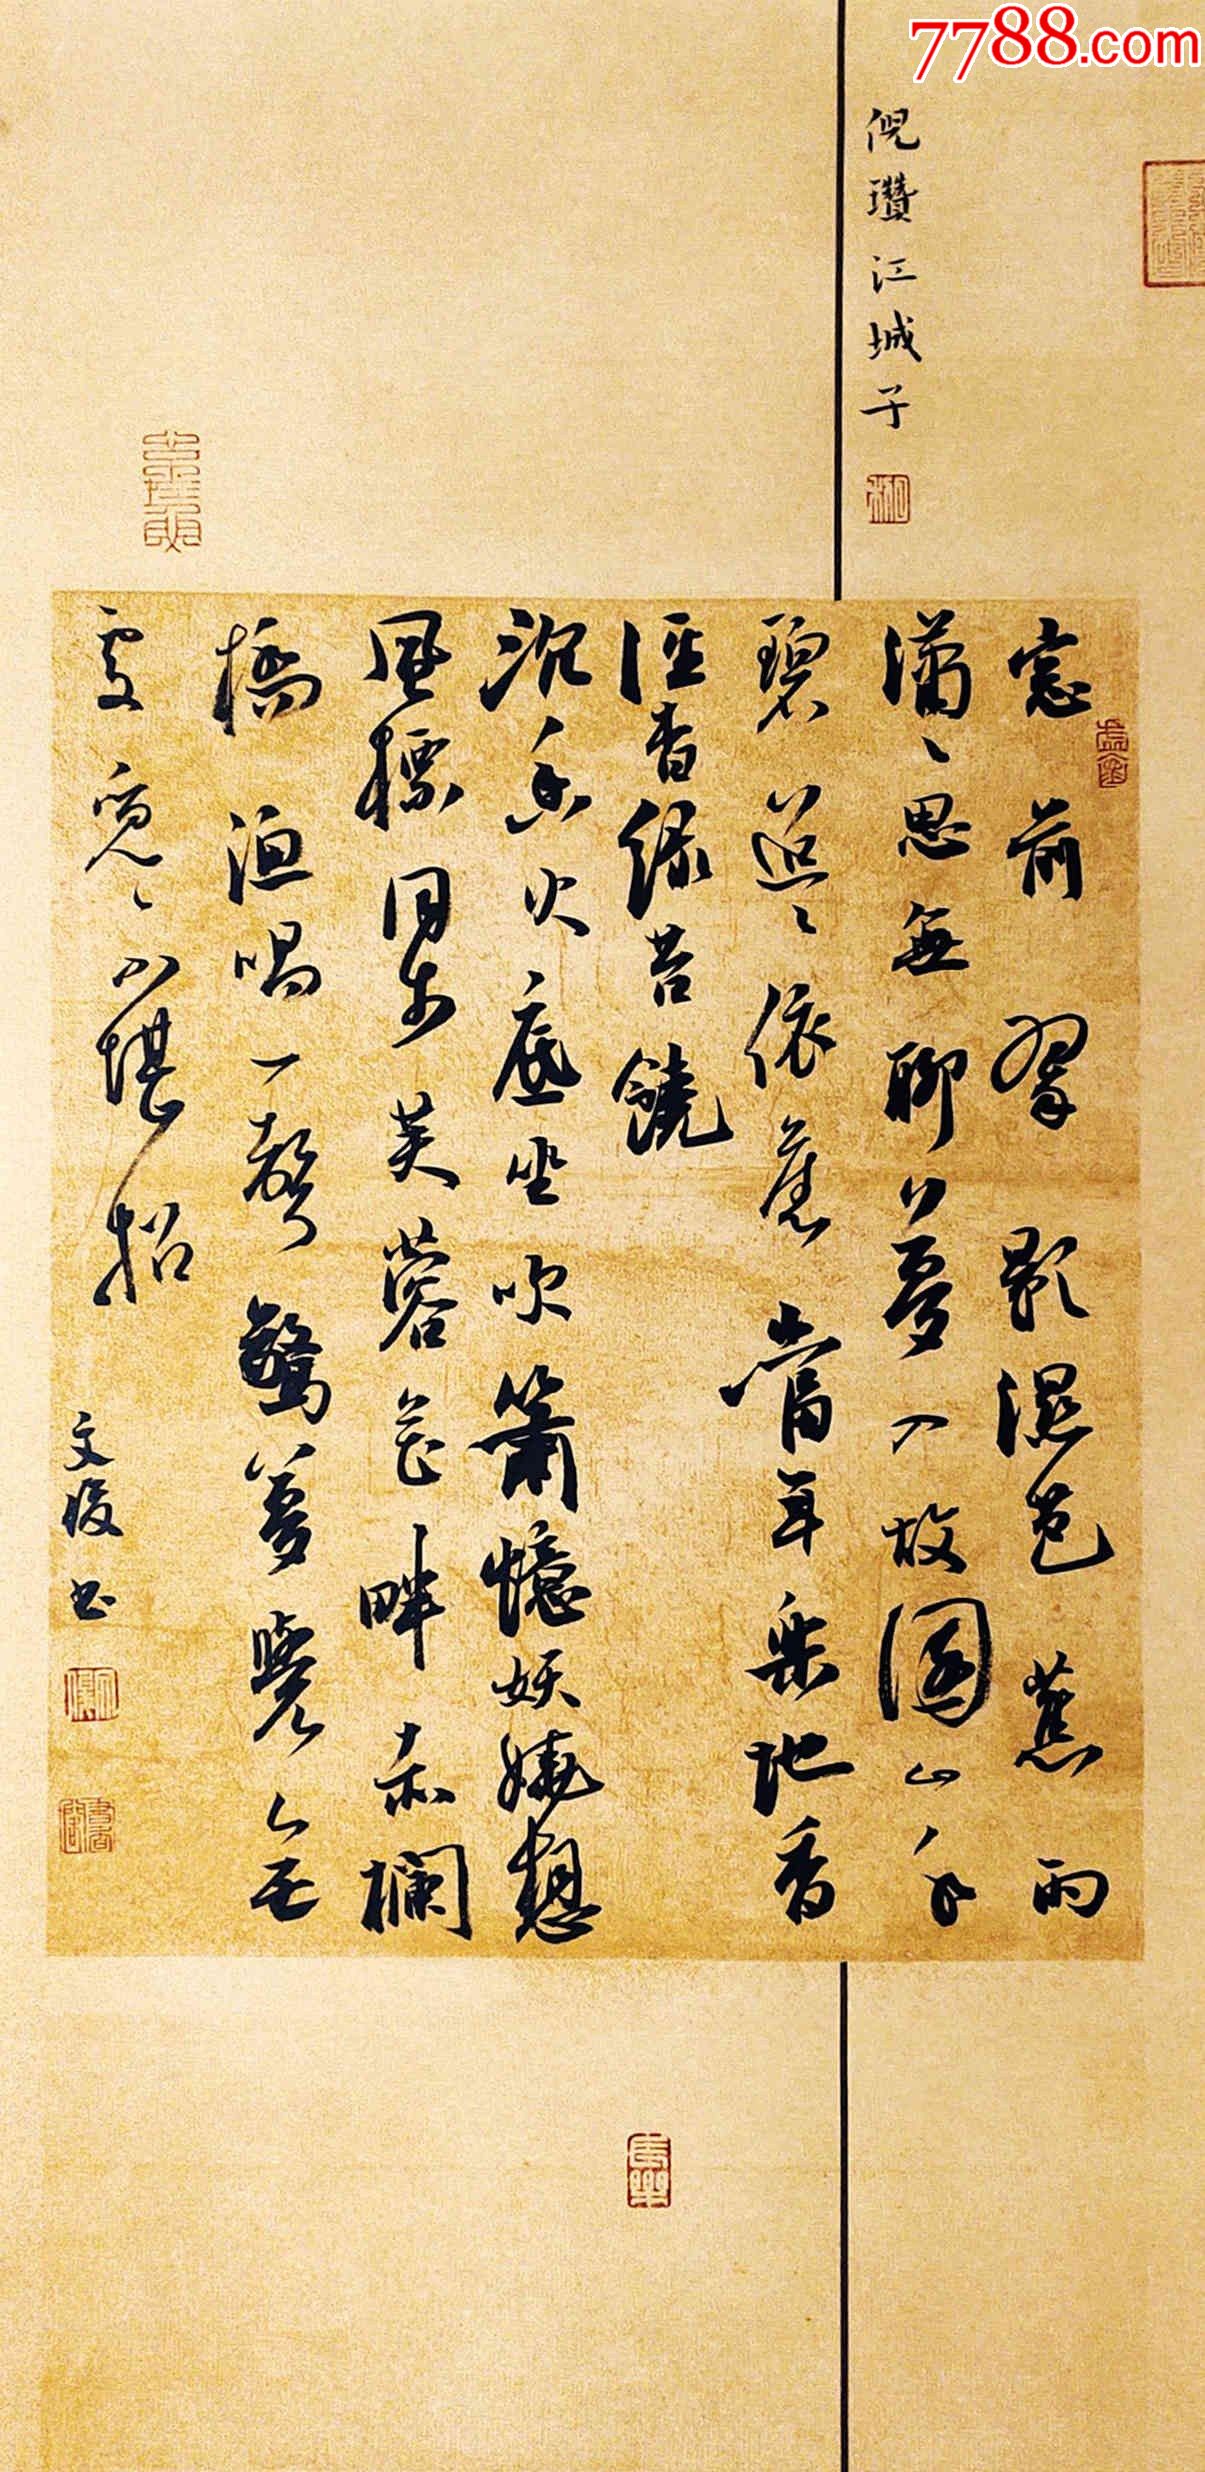 7788.com
倪瓚江城子
窓前翠影濕芭蕉雨
瀟〻思無聊夢入故園山水
碧迢〻依舊當年樂地香
徑杳緑苔饒
沉香火底坐吹簫憶妖嬈想
風標同步芙蓉花畔赤欄
橋漁唱一聲驚夢覺无
處覓〻不堪招
文俊书